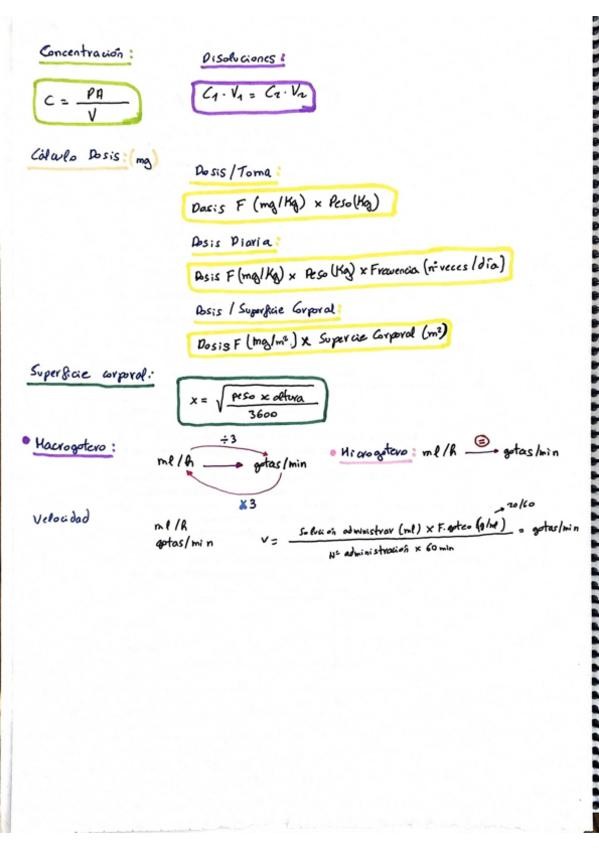 Concentración:
Disoluciones:
C = PA / V
C1 · V1 = C2 · V2
Cálculo Dosis: (mg)
Dosis / Toma:
Dosis F (mg/Kg) x Peso (Kg)
Dosis Diaria:
Dosis F (mg/Kg) x Peso (Kg) x Frecuencia (nº veces / día)
Dosis / Superficie Corporal:
Dosis F (mg/m²) x Supercie Corporal (m²)
Superficie corporal:
x = √ peso x altura / 3600
• Macrogotero:
÷3
ml/h → gotas/min
x3
• Microgotero: ml/h = → gotas/min
Velocidad
ml/h
gotas/min
20/60
V = Solución administrar (ml) x F. goteo (g/ml) / Nº administración x 60 min = gotas/min